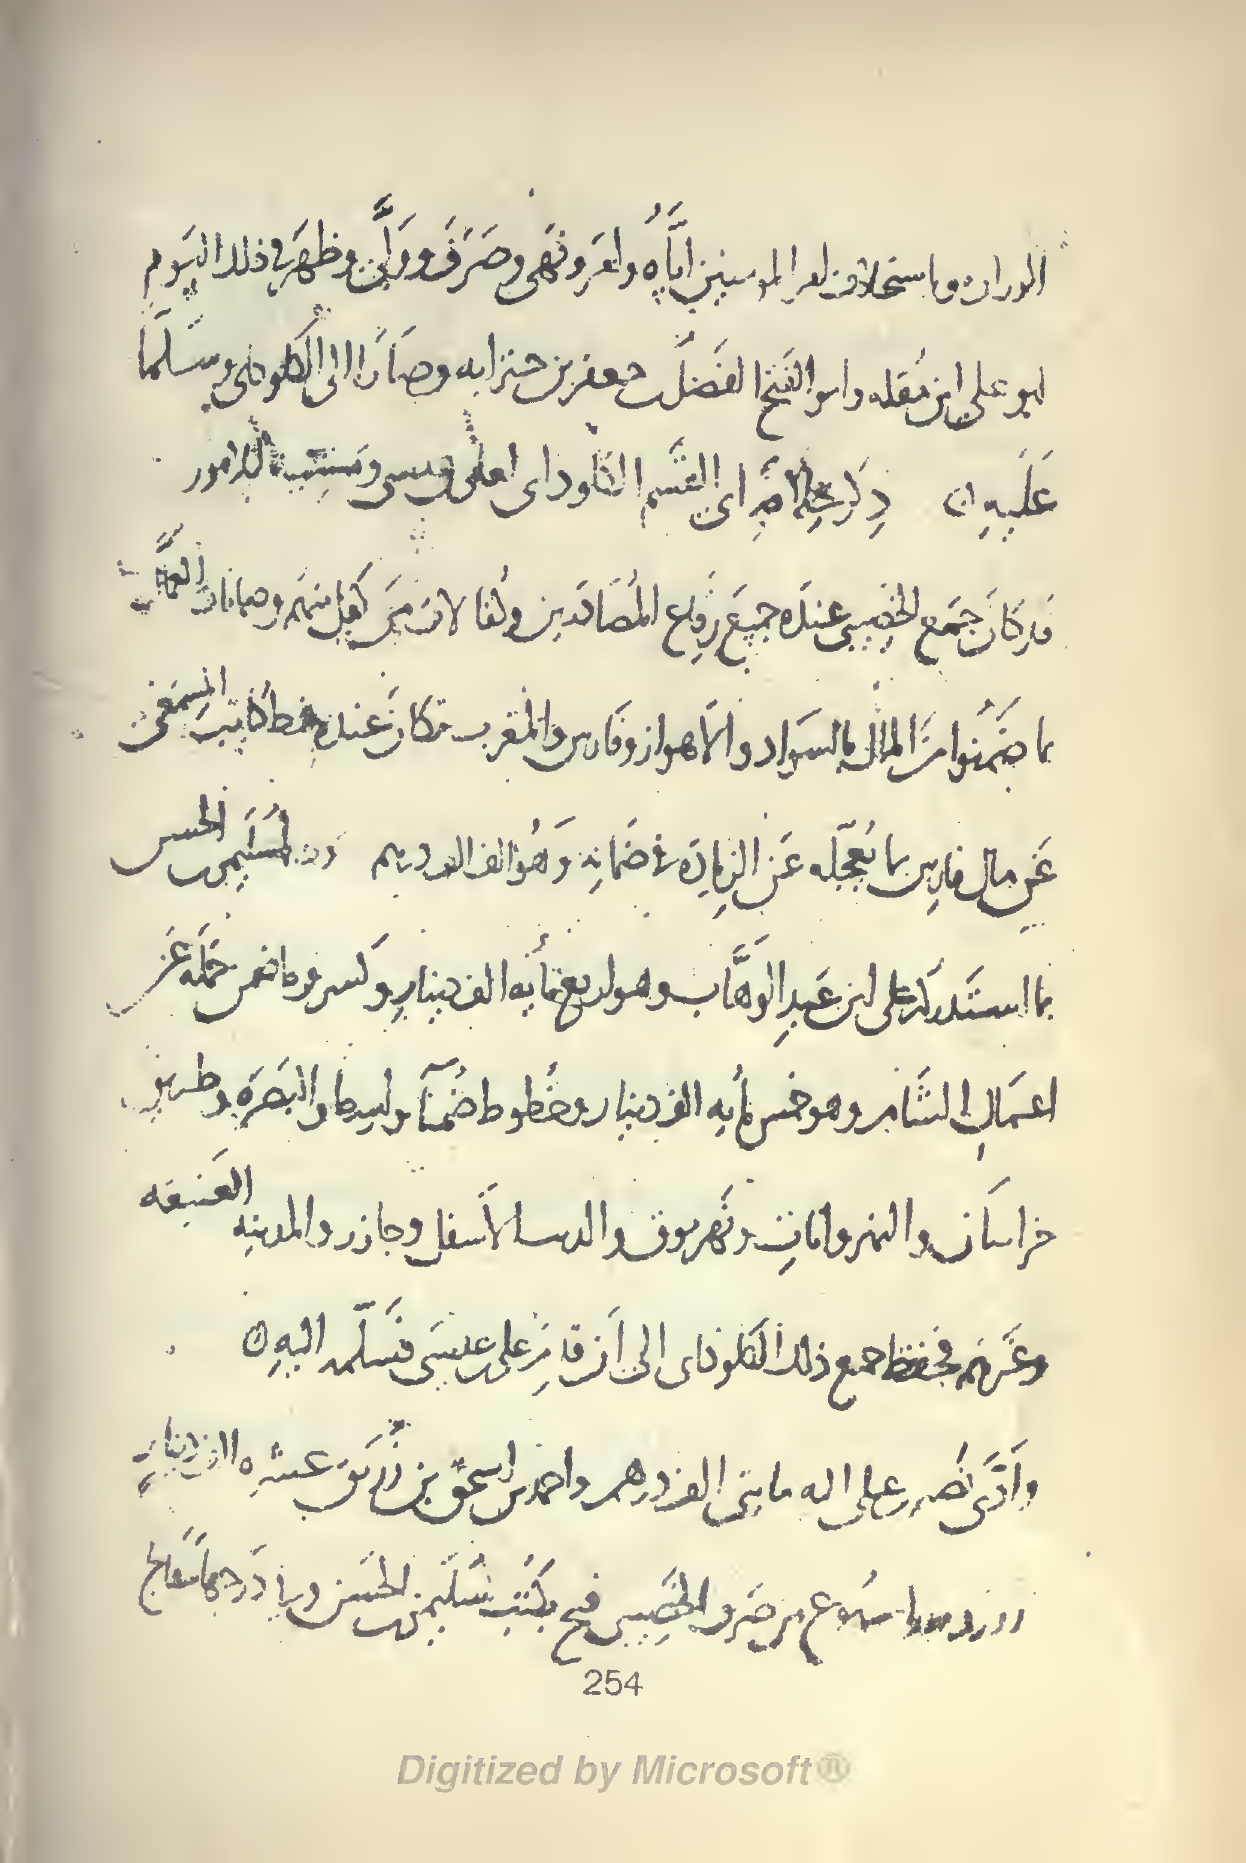 الوزاره وباستخلاف امير المومنين اياه وامر ونهى وصرف وولى وظهر في ذلك اليوم
ابو على ابن مقله وابو الفتح الفضل بن جعفر بن حنزابه وصارا الى الكلوذاى وسلما
عليه ذكر ابى القسم الكلوذاى لعلى بن عيسى الامور
قد كان جمع الخصيبى عنده جميع رقاع المصادرين وكفالات من كفل منهم وضمانات العمال
بما ضمنوا من المال بالسواد والاهواز وفارس والمغرب فكان عنده خط كاتب المسمعى
عن مال فارس بما يعجله عن الزياده في ضمانه وهو الف الف درهم لسليمن بن الحسن
بما استدركه على ابن عبد الوهاب وهو اربع مأيه الف دينار وكسر وما ضمن حمله عن
اعمال الشام وهو خمس مأيه الف دينار وخطوط ضمنا واسط والبصره وطريق
خراسان والنهروانات ونهر بوق والاسفل وجازر والمدينه العتيقه
وغيرهم فحفظ جميع ذلك الكلوذاى الى ان قدم على بن عيسى فسلمه اليه
وادى نصر بن على اليه مايتى الف درهم واحمد بن اسحق بن زريق عشره الاف دينار
من صرف الخصيبى فيح بكتب سليمن بن الحسن وفي درجها سفاتج
254
Digitized by Microsoft®